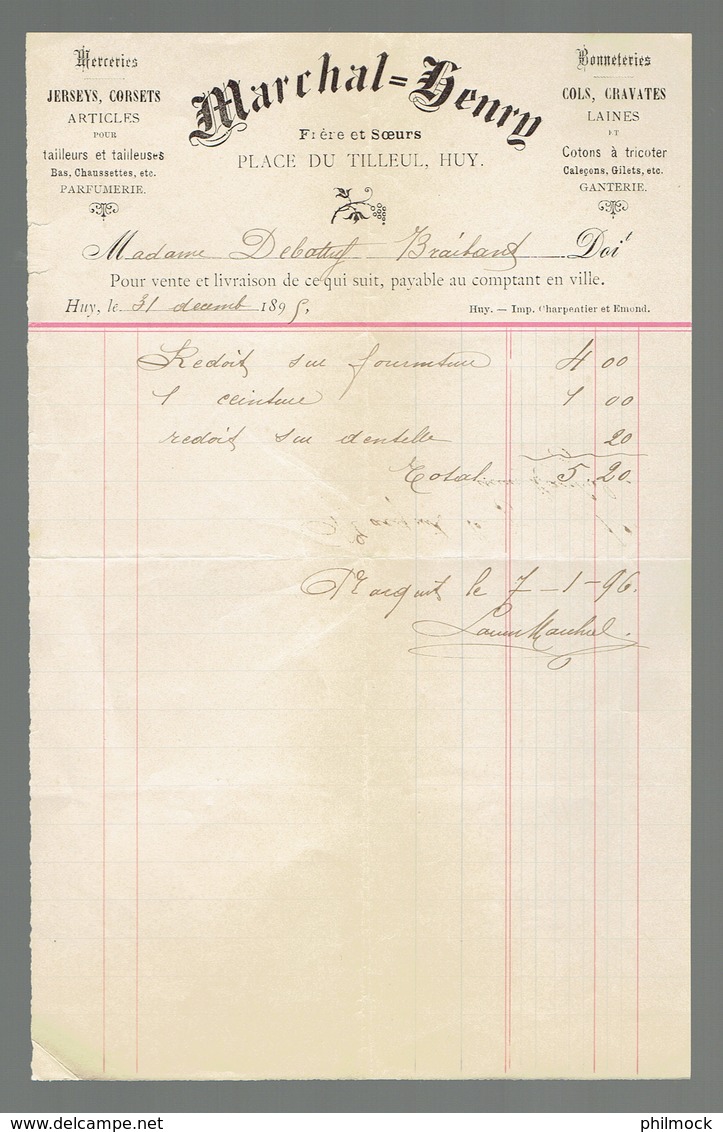 Merceries
JERSEYS, CORSETS
ARTICLES
POUR
tailleurs et tailleuses
Bas, Chaussettes, etc.
PARFUMERIE.
Marchal=Henry
Frère et Sœurs
PLACE DU TILLEUL, HUY.
Bonneteries
COLS, CRAVATES
LAINES
ET
Cotons à tricoter
Caleçons, Gilets, etc.
GANTERIE.
Madame Doit
Pour vente et livraison de ce qui suit, payable au comptant en ville.
Huy, le 31 decemb 1895,
Huy. — Imp. Charpentier et Emond.
Redoit sur fourniture 4 00
1 ceinture 1 00
redoit sur dentelle 20
Total 5 20
le 7-1-96.
Marchal
delcampe.net
philmock